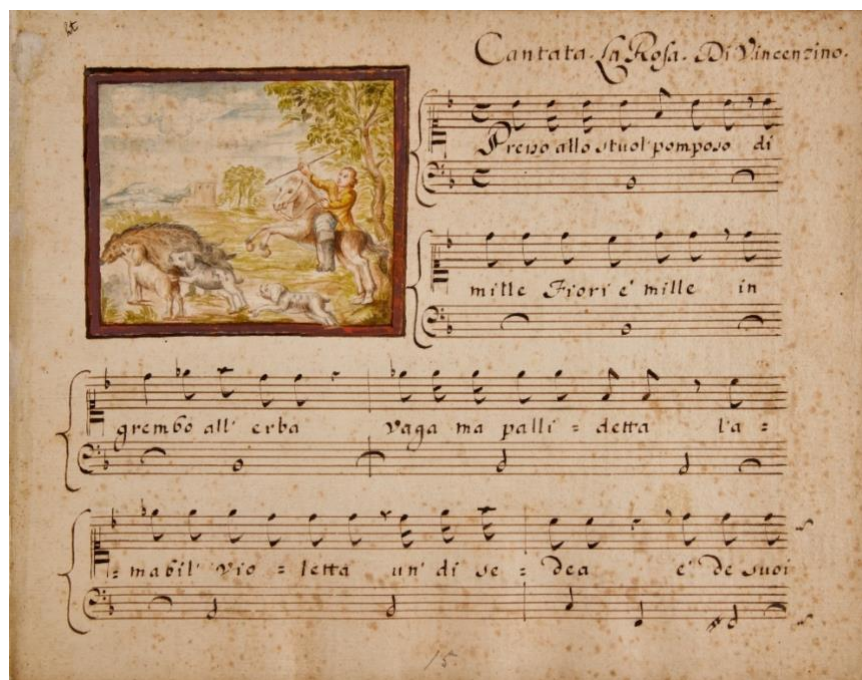 Cantata. La Rosa. Di Vincenzino.
Presso allo stuol pomposo di
mille Fiori e' mille in
grembo all' erba Vaga ma palli = detta l'a =
= mabil' Vio = letta un' di se = dea e' de suoi
15